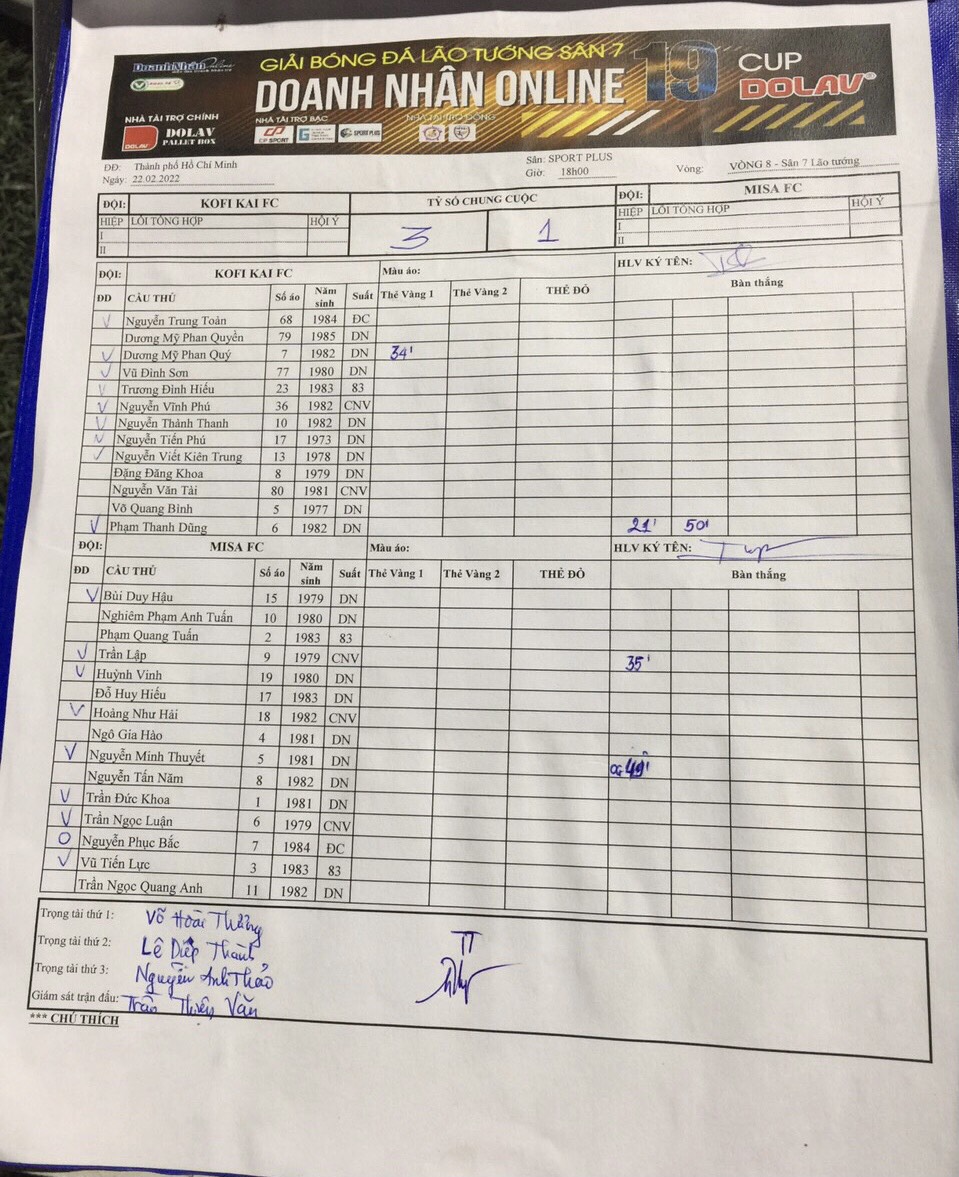 DoanhNhânOnline
GIẢI BÓNG ĐÁ LÃO TƯỚNG SÂN 7
DOANH NHÂN ONLINE 19
CUP
DOLAV®
NHÀ TÀI TRỢ CHÍNH
DOLAV
DOLAV
PALLET BOX
NHÀ TÀI TRỢ BẠC
CP SPORT
SPORT PLUS
NHÀ TÀI TRỢ ĐỒNG
ĐĐ: Thành phố Hồ Chí Minh
Ngày: 22.02.2022
Sân: SPORT PLUS
Giờ: 18h00
Vòng: VÒNG 8 - Sân 7 Lão tướng
ĐỘI: KOFI KAI FC
TỶ SỐ CHUNG CUỘC
ĐỘI: MISA FC
HIỆP LỖI TỔNG HỢP HỘI Ý
I
II
3 1
HIỆP LỖI TỔNG HỢP HỘI Ý
I
II
ĐỘI: KOFI KAI FC Màu áo: HLV KÝ TÊN:
ĐD CẦU THỦ Số áo Năm sinh Suất Thẻ Vàng 1 Thẻ Vàng 2 THẺ ĐỎ Bàn thắng
V Nguyễn Trung Toản 68 1984 ĐC
Dương Mỹ Phan Quyền 79 1985 DN
V Dương Mỹ Phan Quý 7 1982 DN 34'
V Vũ Đình Sơn 77 1980 DN
V Trương Đình Hiếu 23 1983 83
V Nguyễn Vĩnh Phú 36 1982 CNV
V Nguyễn Thành Thanh 10 1982 DN
V Nguyễn Tiến Phú 17 1973 DN
V Nguyễn Viết Kiên Trung 13 1978 DN
Đặng Đăng Khoa 8 1979 DN
Nguyễn Văn Tài 80 1981 CNV
Võ Quang Bình 5 1977 DN
V Phạm Thanh Dũng 6 1982 DN 21' 50'
ĐỘI: MISA FC Màu áo: HLV KÝ TÊN:
ĐD CẦU THỦ Số áo Năm sinh Suất Thẻ Vàng 1 Thẻ Vàng 2 THẺ ĐỎ Bàn thắng
V Bùi Duy Hậu 15 1979 DN
Nghiêm Phạm Anh Tuấn 10 1980 DN
Phạm Quang Tuấn 2 1983 83
V Trần Lập 9 1979 CNV 35'
V Huỳnh Vinh 19 1980 DN
Đỗ Huy Hiếu 17 1983 DN
V Hoàng Như Hải 18 1982 CNV
Ngô Gia Hào 4 1981 DN
V Nguyễn Minh Thuyết 5 1981 DN OG
Nguyễn Tấn Năm 8 1982 DN
V Trần Đức Khoa 1 1981 DN
V Trần Ngọc Luận 6 1979 CNV
O Nguyễn Phục Bắc 7 1984 ĐC
V Vũ Tiến Lực 3 1983 83
Trần Ngọc Quang Anh 11 1982 DN
Trọng tài thứ 1: Võ Hoài Thương
Trọng tài thứ 2: Lê Diệp Thành
Trọng tài thứ 3: Nguyễn Anh Thảo
Giám sát trận đấu: Trần Văn
TT
*** CHÚ THÍCH